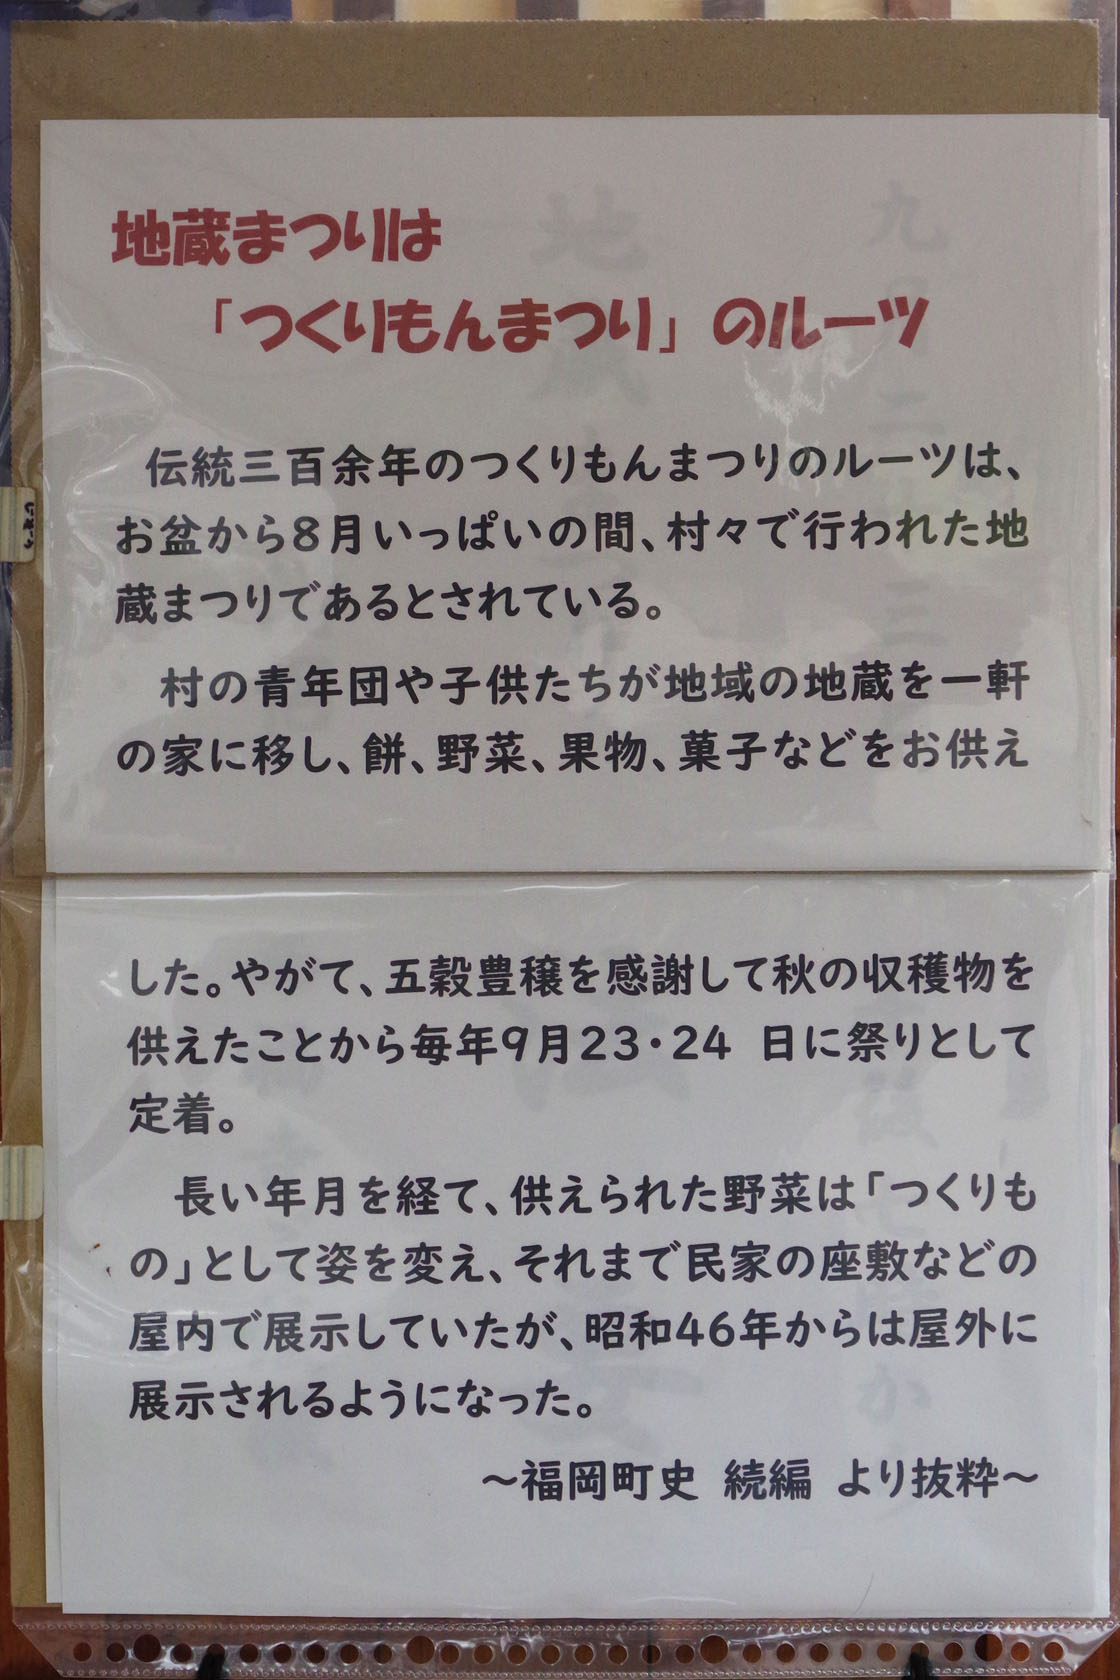 地蔵まつりは
「つくりもんまつり」のルーツ
伝統三百余年のつくりもんまつりのルーツは、
お盆から8月いっぱいの間、村々で行われた地
蔵まつりであるとされている。
村の青年団や子供たちが地域の地蔵を一軒
の家に移し、餅、野菜、果物、菓子などをお供え
した。やがて、五穀豊穣を感謝して秋の収穫物を
供えたことから毎年9月23・24 日に祭りとして
定着。
長い年月を経て、供えられた野菜は「つくりも
の」として姿を変え、それまで民家の座敷などの
屋内で展示していたが、昭和46年からは屋外に
展示されるようになった。
～福岡町史 続編 より抜粋～